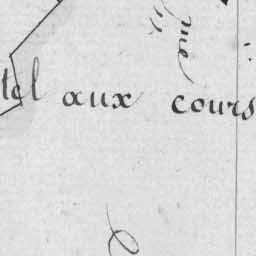 tel aux cours
me